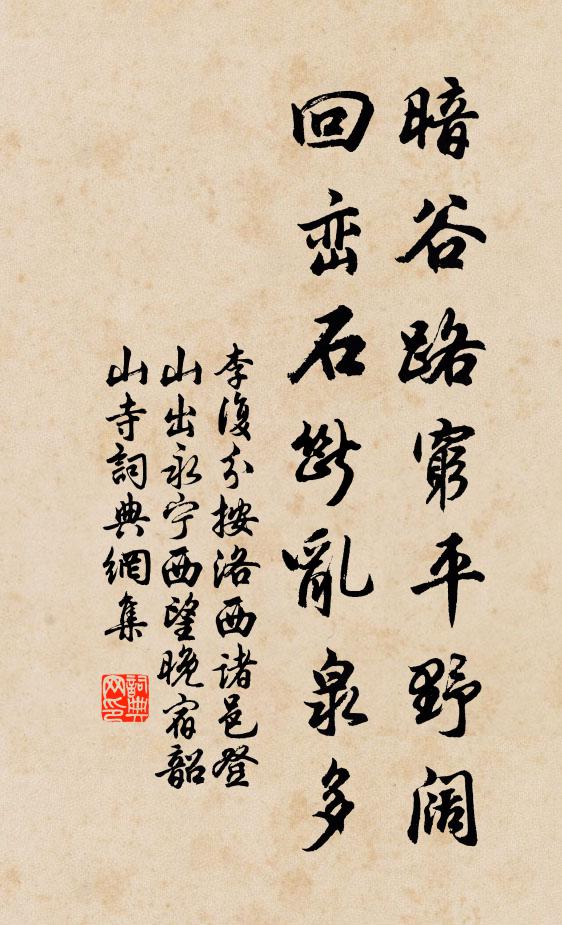 暗谷路窮平野阔
回峦石斷亂泉多
李復分按洛西诸邑登
山出永宁西望晚宿韶
山寺詞典網集
詞典网印